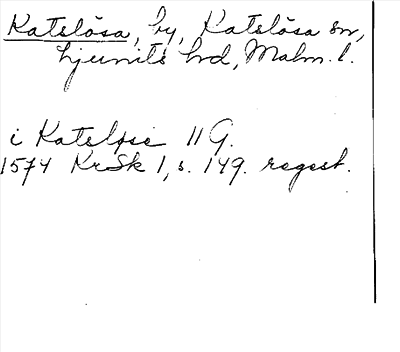 Katslösa, by, Katslösa sn,
Ljunits hd, Malm. l.
i Katsløsse 11 G.
1574 KrSk 1, s. 149. regest.